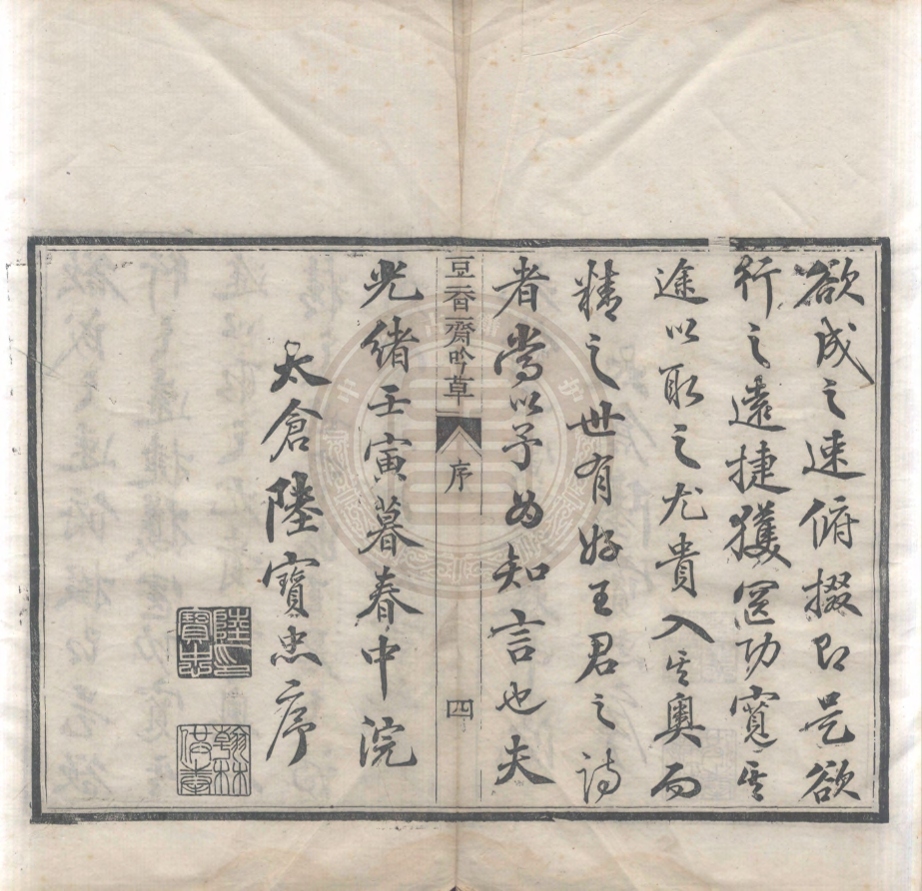 欲成之速俯掇即是欲
行之遠捷獲罔功寛其
途以取之尤貴入其奧而
精之世有好王君之詩
者嘗以予為知言也夫
豆香齋吟草
序
四
光緒壬寅暮春中浣
太倉陸寶忠序
陸印寶忠
翰林供奉